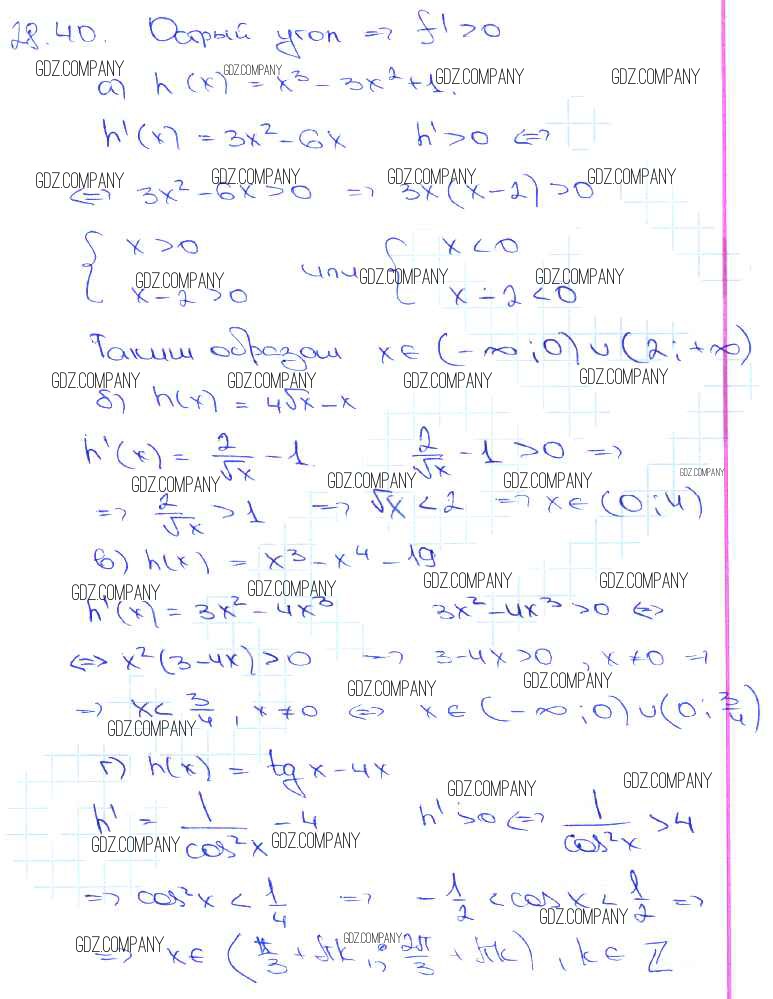 28.40. Острый угол => f' > 0
GDZ.COMPANY GDZ.COMPANY GDZ.COMPANY GDZ.COMPANY
а) h(x) = x³ − 3x² + 1.
h'(x) = 3x² − 6x h' > 0 <=>
GDZ.COMPANY GDZ.COMPANY GDZ.COMPANY GDZ.COMPANY
<=> 3x² − 6x > 0 => 3x(x − 2) > 0
{ x > 0 или { x < 0
GDZ.COMPANY GDZ.COMPANY GDZ.COMPANY
x − 2 > 0 x − 2 < 0
Таким образом x ∈ (−∞; 0) ∪ (2; +∞)
GDZ.COMPANY GDZ.COMPANY GDZ.COMPANY GDZ.COMPANY
б) h(x) = 4√x − x
h'(x) = 2/√x − 1. 2/√x − 1 > 0 =>
GDZ.COMPANY GDZ.COMPANY GDZ.COMPANY GDZ.COMPANY
=> 2/√x > 1 => √x < 2 => x ∈ (0; 4)
в) h(x) = x³ − x⁴ − 19
GDZ.COMPANY GDZ.COMPANY GDZ.COMPANY GDZ.COMPANY
h'(x) = 3x² − 4x³ 3x² − 4x³ > 0 <=>
<=> x²(3 − 4x) > 0 => 3 − 4x > 0, x ≠ 0 =>
GDZ.COMPANY GDZ.COMPANY
=> x < 3/4, x ≠ 0 <=> x ∈ (−∞; 0) ∪ (0; 3/4)
GDZ.COMPANY
г) h(x) = tg x − 4x
GDZ.COMPANY GDZ.COMPANY
h' = 1/cos²x − 4 h' > 0 <=> 1/cos²x > 4
GDZ.COMPANY GDZ.COMPANY
=> cos²x < 1/4 => −1/2 < cos x < 1/2 =>
GDZ.COMPANY
GDZ.COMPANY GDZ.COMPANY
=> x ∈ (π/3 + πk; 2π/3 + πk), k ∈ Z